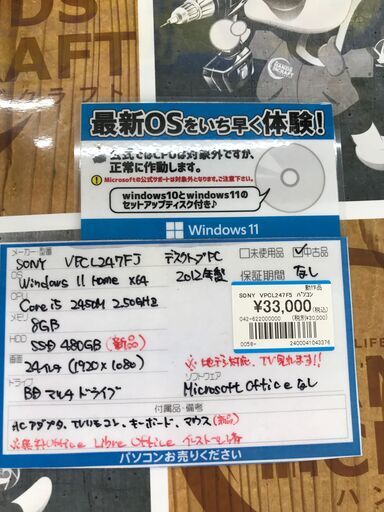 最新OSをいち早く体験!
公式ではCPUは対象外ですが、
正常に作動します。
Microsoftの公式サポートは対象外となります。ご注意下さい。
windows10とwindows11の
セットアップディスク付き♪
Windows 11
メーカー 型番
SONY VPCL247FJ デスクトップPC
□未使用品 ☑中古品
OS
Windows 11 Home x64 2012年製
保証期間 なし
CPU
Core i5 2450M 2.50GHz
メモリ
8GB
HDD
SSD 480GB (新品)
24インチ (1920×1080)
※地デジ対応、TV見れます!!
ドライブ
BDマルチドライブ
ソフトウェア
Microsoft Officeなし
動作品
SONY VPCL247FJ パソコン
¥33,000(税込)
042-622000000 (税抜¥30,000)
0058-
2400041043376
付属品・備考
ACアダプタ、TVリモコン、キーボード、マウス(新品)
※無料Office Libre Office インストール済
パソコンお売りください